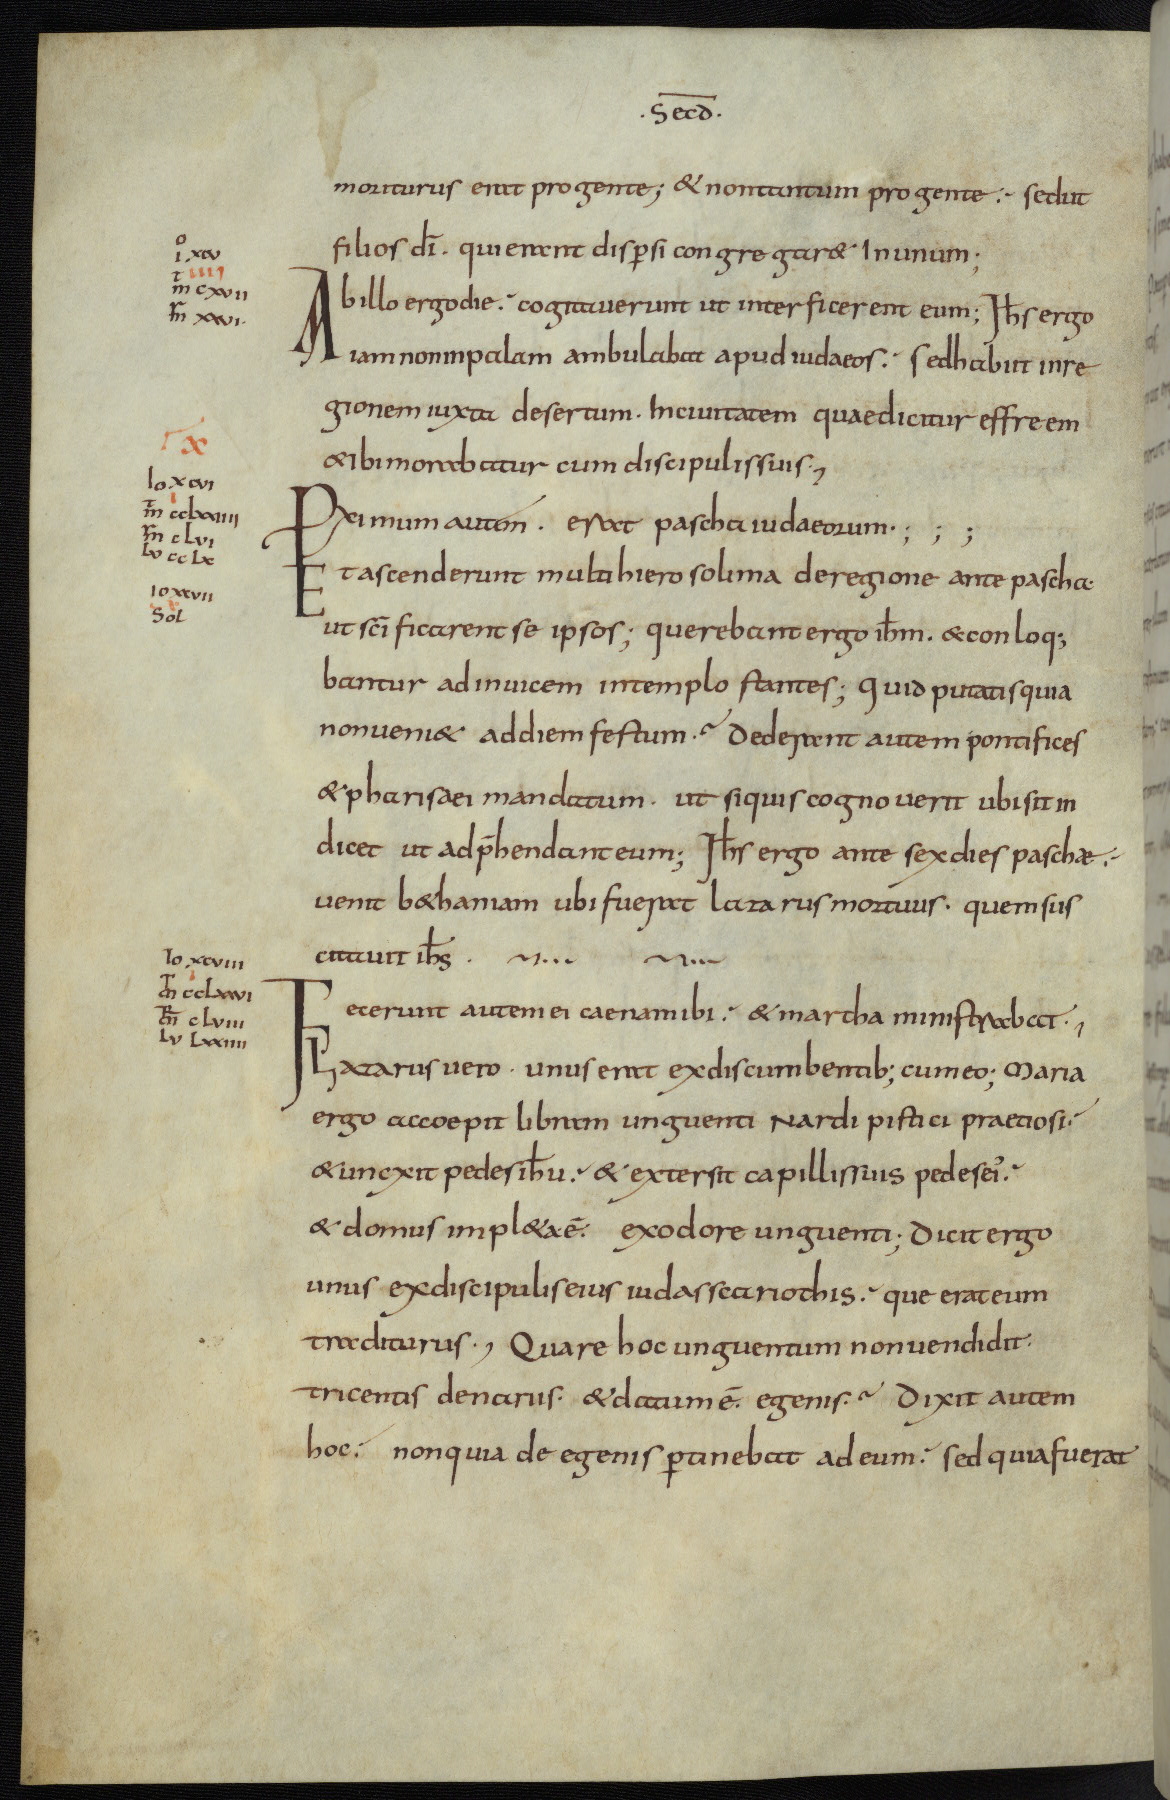 · Secd ·
moriturus erat pro gente; & non tantum pro gente. sed ut
filios dī. qui erant dispsi congregar& In unum;
io xcv
t IIII
m cxvii
m xxvi.
Ab illo ergo die. cogitaverunt ut interficerent eum; Ihs ergo
iam non inpalam ambulabat apud iudaeos. Sed habiit in re
gionem iuxta desertum. In civitatem quae dicitur effreem
& Ibi morabatur cum discipulis suis.,
x
Io xcvi
I
m cclxxiiii
m clvi
Lv cclx
Io xcvii
Sol
Pximum autem. erat pascha iudaeorum. ; ; ;
Et ascenderunt multi hierosolima de regione ante pascha
ut scīficarent se ipsos; querebant ergo ihm. & conloq;
bantur ad invicem in templo stantes; Quid putatis quia
non veni& ad diem festum. Dederant autem pontifices
& pharisaei mandatum. ut si quis cognoverit ubi sit in
dicet ut adp̄hendant eum; Ihs ergo ante sex dies paschae.
venit b&haniam ubi fuerat lazarus mortuus. quem sus
citavit ihs.
Io xcviii
I
m cclxxvi
m clviii
Lv lxxiiii
Fecerunt autem ei caenam ibi. & martha ministrabat.,
Lazarus vero. unus erat ex discumbentib; cum eo; Maria
ergo accoepit libram unguenti Nardi pistici praetiosi.
& unxit pedes ihu. & extersit capillis suis pedes ei'.
& domus impl&a ē. ex odore unguenti; Dicit ergo
unus ex discipulis eius iudas scariothis. que erat eum
traditurus., Quare hoc unguentum non vendidit.
tricentis denariis. & datum ē. egenis. Dixit autem
hoc. non quia de egenis ptinebat ad eum. sed quia fuerat